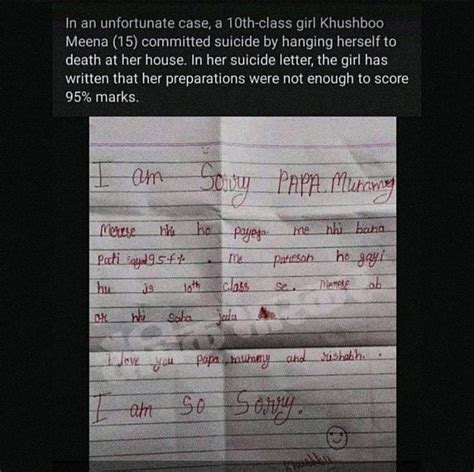 In an unfortunate case, a 10th-class girl Khushboo
Meena (15) committed suicide by hanging herself to
death at her house. In her suicide letter, the girl has
written that her preparations were not enough to score
95% marks.
I am Sorry PAPA. Mummy
Merese nhi ho payega. me nhi bana
pati 95+%. me paresan ho gayi
hu is 10th class se. Merese ab
nhi Saha
I love you Papa, mummy and rishabh.
I am so Sorry.